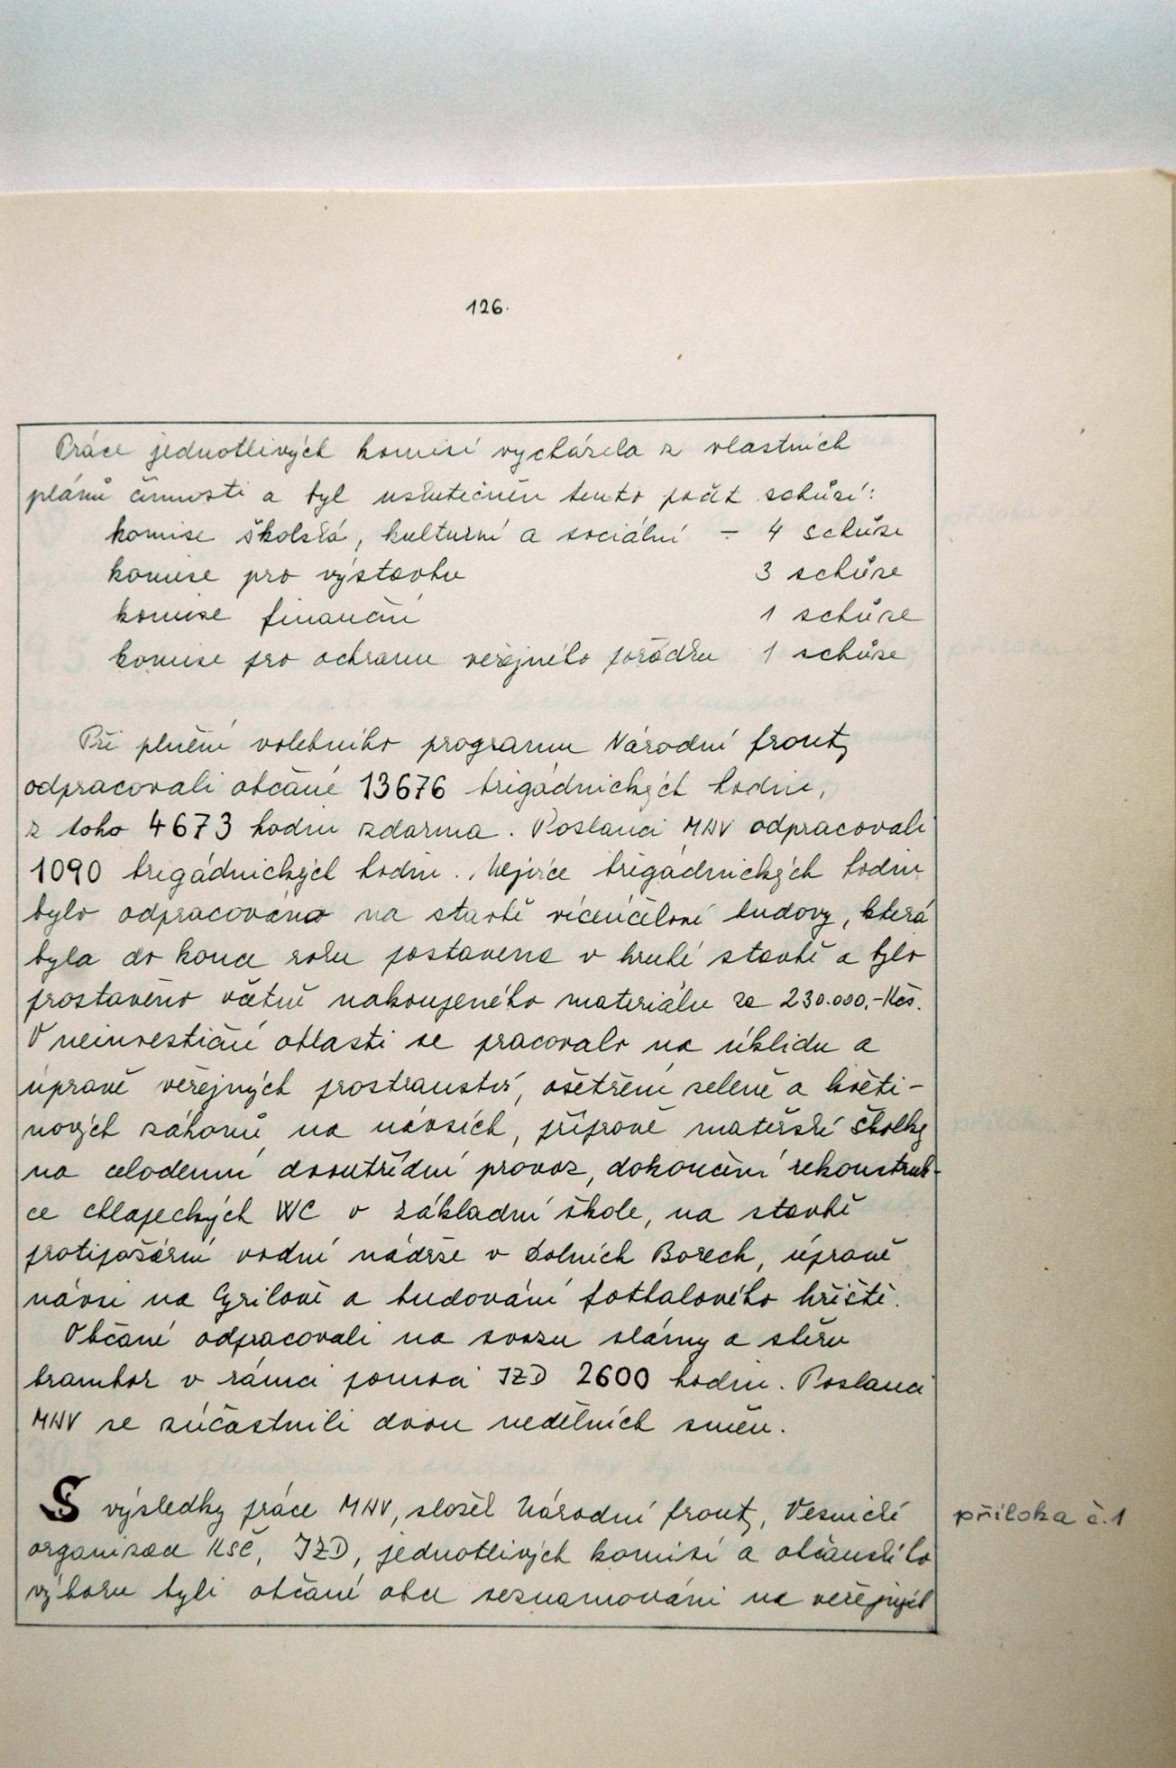 126.
Práce jednotlivých komisí vycházela z vlastních
plánů činnosti a byl uskutečněn tento počet schůzí:
komise školská, kulturní a sociální – 4 schůze
komise pro výstavbu 3 schůze
komise finanční 1 schůze
komise pro ochranu veřejného pořádku 1 schůze
Při plnění volebního programu Národní fronty
odpracovali občané 13676 brigádnických hodin,
z toho 4673 hodin zdarma. Poslanci MNV odpracovali
1090 brigádnických hodin.. Nejvíce brigádnických hodin
bylo odpracováno na stavbě víceúčelové budovy, která
byla do konce roku postavena v hrubé stavbě a bylo
prostavěno včetně nakoupeného materiálu za 230.000,-Kčs.
V neinvestiční oblasti se pracovalo na úklidu a
úpravě veřejných prostranství, ošetření zeleně a květi-
nových záhonů na návsích, přípravě mateřské školky
na celodenní dvoutřídní provoz, dokončení rekonstruk-
ce chlapeckých WC v základní škole, na stavbě
protipožární vodní nádrže v Dolních Borech, úpravě
návsi na Cyrilově a budování fotbalového hřiště.
Občané odpracovali na svozu slámy a sběru
brambor v rámci pomoci JZD 2600 hodin. Poslanci
MNV se zúčastnili dvou nedělních směn.
S výsledky práce MNV, složek Národní fronty, Vesnické
organizace KSČ, JZD, jednotlivých komisí a občanského
výboru byli občané obce seznamováni na veřejných
příloha č.1